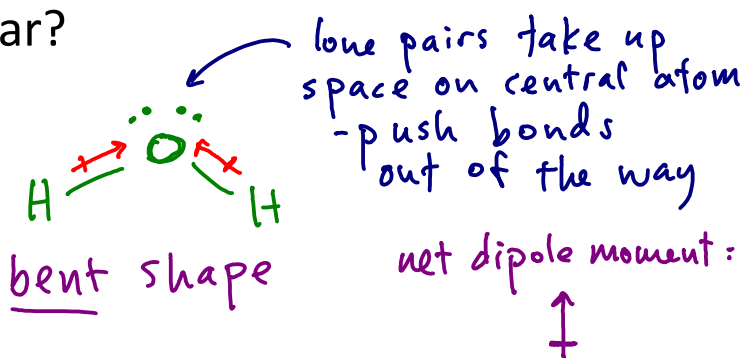 ar?
lone pairs take up
space on central atom
-push bonds
out of the way
O
H H
bent shape
net dipole moment: